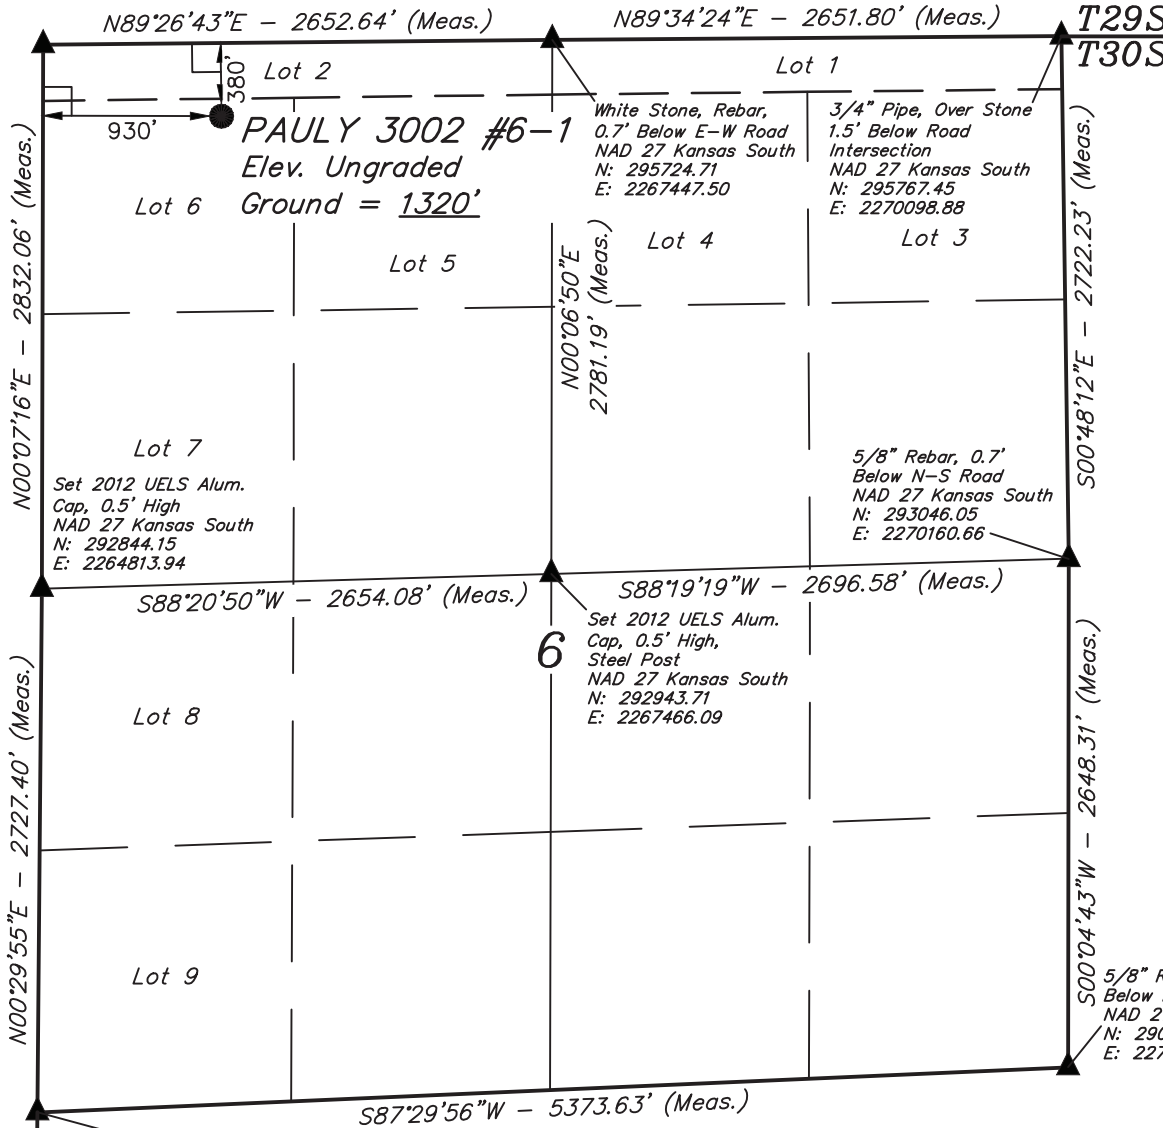 N89°26'43"E – 2652.64' (Meas.)
N89°34'24"E – 2651.80' (Meas.)
T29S
T30S
Lot 2
Lot 1
380'
930'
PAULY 3002 #6-1
Elev. Ungraded
Ground = 1320'
White Stone, Rebar,
0.7' Below E-W Road
NAD 27 Kansas South
N: 295724.71
E: 2267447.50
3/4" Pipe, Over Stone
1.5' Below Road
Intersection
NAD 27 Kansas South
N: 295767.45
E: 2270098.88
Lot 6
Lot 5
Lot 4
Lot 3
N00°07'16"E – 2832.06' (Meas.)
N00°06'50"E
2781.19' (Meas.)
S00°48'12"E – 2722.23' (Meas.)
Lot 7
Set 2012 UELS Alum.
Cap, 0.5' High
NAD 27 Kansas South
N: 292844.15
E: 2264813.94
5/8" Rebar, 0.7'
Below N-S Road
NAD 27 Kansas South
N: 293046.05
E: 2270160.66
S88°20'50"W – 2654.08' (Meas.)
S88°19'19"W – 2696.58' (Meas.)
6
Set 2012 UELS Alum.
Cap, 0.5' High,
Steel Post
NAD 27 Kansas South
N: 292943.71
E: 2267466.09
Lot 8
N00°29'55"E – 2727.40' (Meas.)
S00°04'43"W – 2648.31' (Meas.)
Lot 9
5/8" R
Below
NAD 2
N: 290
E: 227
S87°29'56"W – 5373.63' (Meas.)